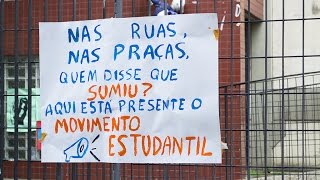 NAS RUAS,
NAS PRAÇAS,
QUEM DISSE QUE
SUMIU?
AQUI ESTÁ PRESENTE O
MOVIMENTO
ESTUDANTIL